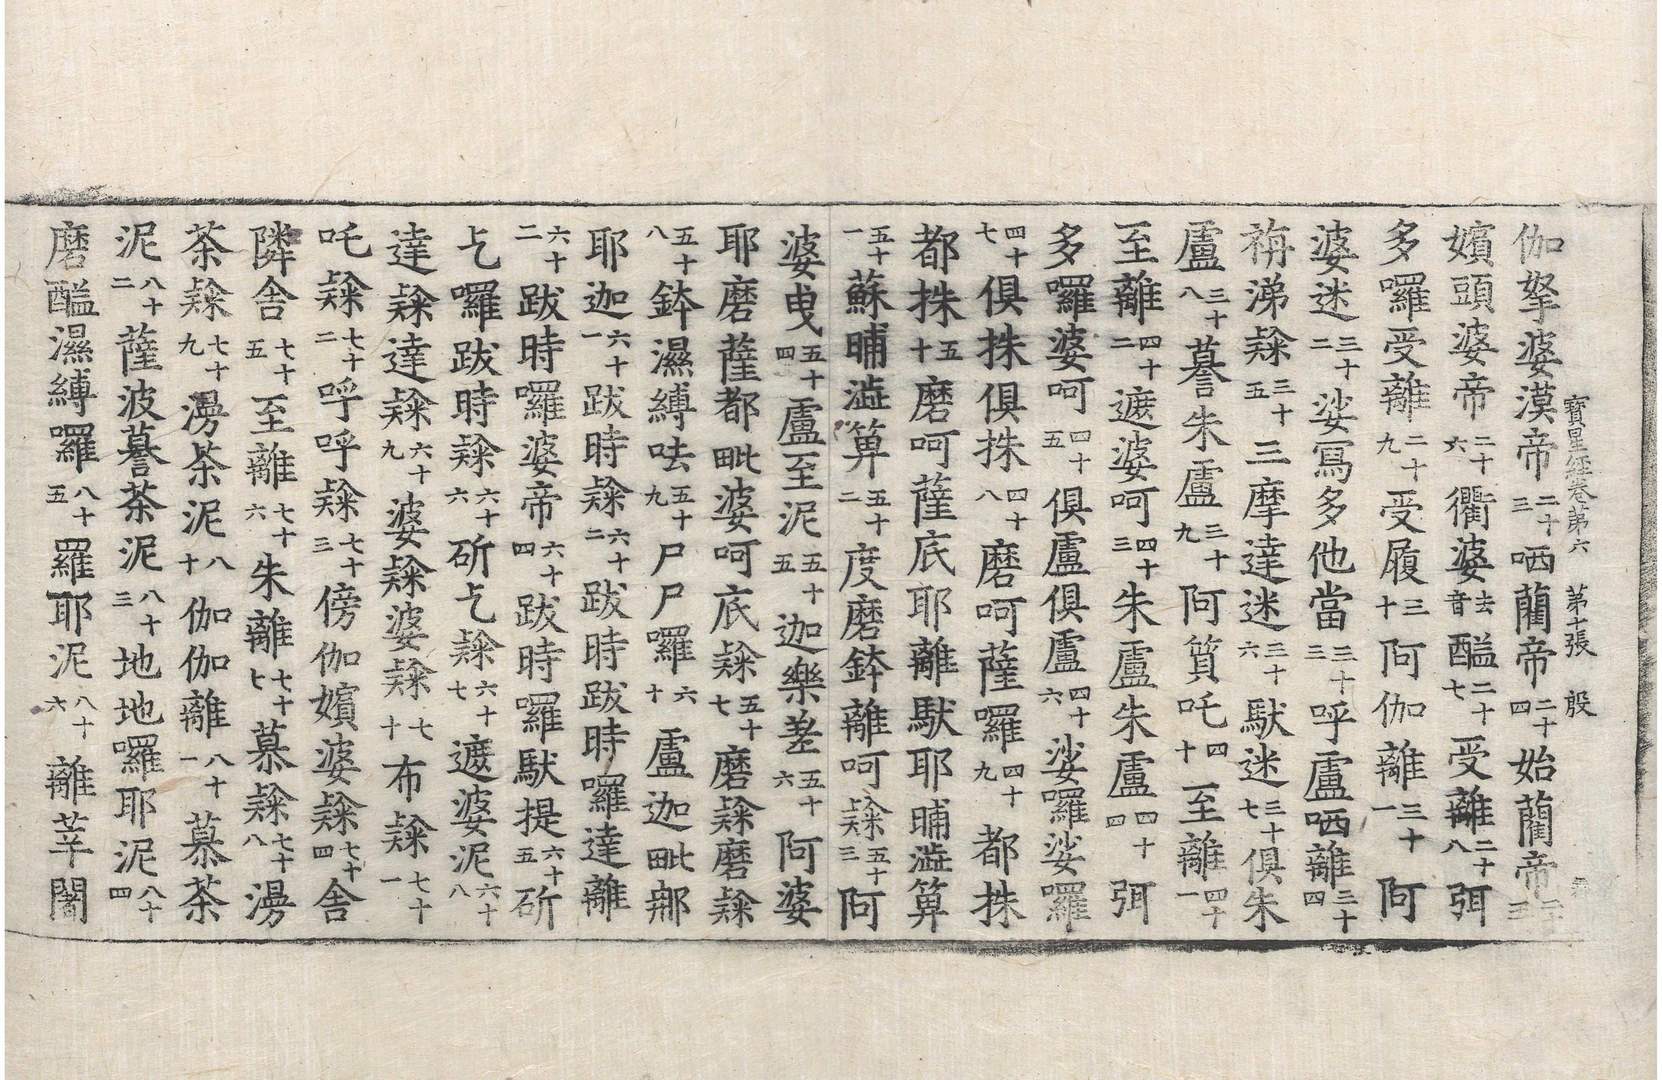 寶星經卷第六 第十張 殷
伽拏婆漠帝二十三哂藺帝二十四始藺帝二十五
嬪頭婆帝二十六衢婆去音醯二十七受離二十八弭
多囉受離二十九受履三十阿伽離三十一阿
婆迷三十二娑寫多他當三十三呼盧哂離三十四
祷涕隸三十五三摩達迷三十六馱迷三十七俱朱
盧三十八謩朱盧三十九阿質吒四十至離四十一
至離四十二遮婆呵四十三朱盧朱盧四十四弭
多囉婆呵四十五俱盧俱盧四十六娑囉娑囉
四十七俱株俱株四十八磨呵薩囉四十九都株
都株五十磨呵薩底耶離馱耶晡澁箅
五十一蘇晡澁箅五十二度磨鉢離呵隸五十三阿
婆曳五十四盧至泥五十五迦樂差五十六阿婆
耶磨薩都毗婆呵底隸五十七磨隸磨隸
五十八鉢濕縛呿五十九尸尸囉六十盧迦毗那
耶迦六十一跋時隸六十二跋時跋時囉達離
六十二跋時囉婆帝六十四跋時囉馱提六十五斫
乞囉跋時隸六十六斫乞隸六十七遮婆泥六十八
達隸達隸六十九婆隸婆隸七十布隸七十一
吒隸七十二呼呼隸七十三傍伽嬪婆隸七十四舍
隣舍七十五至離七十六朱離七十七慕隸七十八漫
茶隸七十九漫茶泥八十伽伽離八十一慕茶
泥八十二薩波謩茶泥八十三地地囉耶泥八十四
磨醯濕縛囉八十五羅耶泥八十六離莘闍